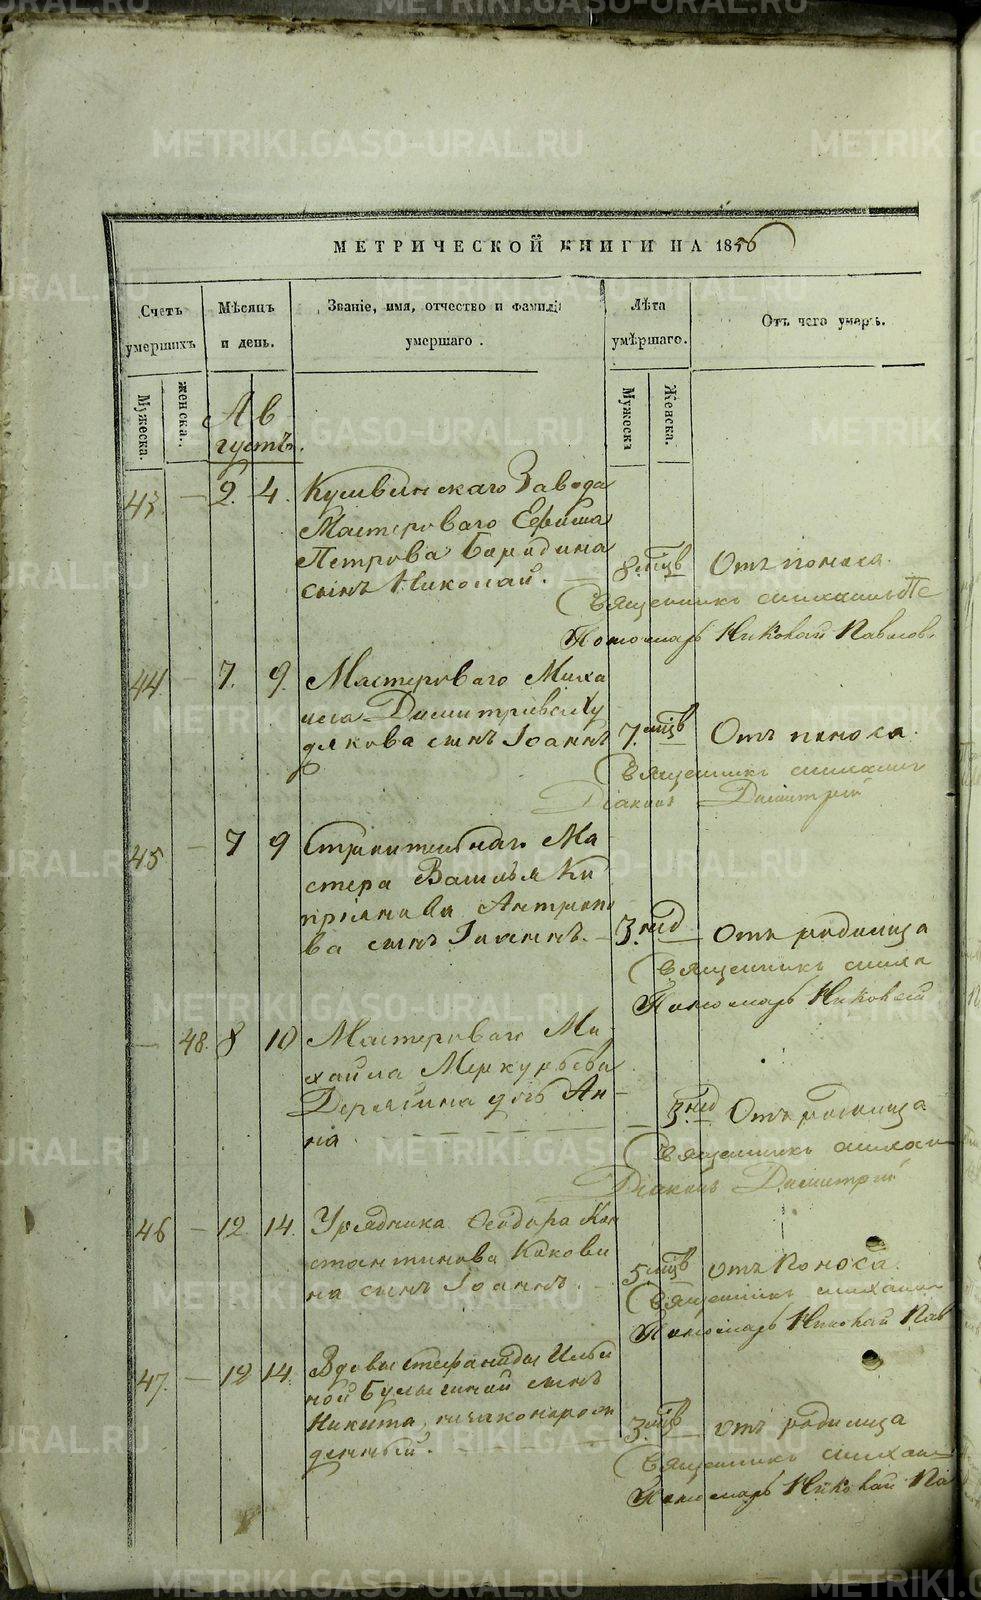 МЕТРИЧЕСКОЙ КНИГИ НА 1856
Счетъ умершихъ
Мѣсяцъ и день.
Званіе, имя, отчество и фамилія умершаго.
Лѣта умѣршаго.
Отъ чего умеръ.
Мужеска. женска.
Мужеска Женска.
Августъ.
43 — 2. 4. Кушвинскаго Завода
Мастероваго Ефима
Петрова Бородина
сынъ Николай. — 8 мцв Отъ поноса.
Священникъ Михаилъ
Пономарь Николай Павлов
44 — 7. 9. Мастероваго Миха
ила Димитріева Ху
дякова сынъ Іоаннъ 7. мцв Отъ поноса.
Священникъ Михаилъ
Діаконъ Димитрій
45 — 7 9 Строительнаго Ма
стера Василья Ки
пріянова Антипо
ва сынъ Іоаннъ. — 3. нед — Отъ родимца
Священникъ Миха
Пономарь Николай
— 48. 8 10 Мастероваго Ми
хайла Меркурьева
Дерягина дочь Ан
на. 3 нед Отъ родимца
Священникъ Михаи
Діаконъ Димитрій
46 — 12 14. Урядника Ѳеодора Кон
стантинова Какови
на сынъ Іоаннъ. 5 мцв Отъ Поноса.
Священникъ Михаил
Пономарь Николай Пав
47. — 12 14. Вдовы Стефаниды Ильи
ной Булыгиной сынъ
Никита, незаконорож
денный. 3. мцв — отъ родимца
Священникъ Михаи
Пономарь Николай Па
METRIKI.GASO-URAL.RU